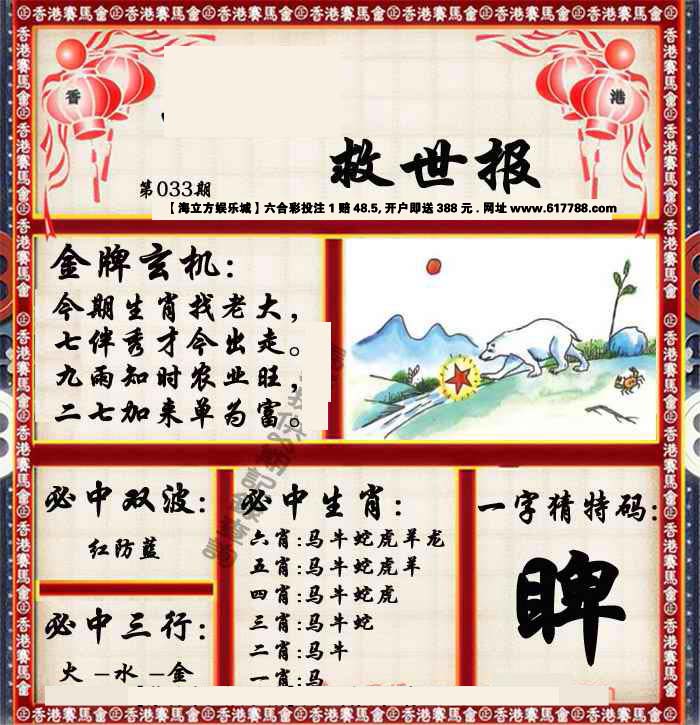 香港賽馬會㊣香港賽馬會㊣香港賽馬會㊣香港賽馬會
香
港
救世报
第033期
【海立方娱乐城】六合彩投注1赔48.5,开户即送388元.网址www.617788.com
金牌玄机:
今期生肖找老大,
七伴秀才今出走。
九雨知时农业旺,
二七加来单为富。
必中双波:
红防蓝
必中三行:
火-水-金
必中生肖:
六肖:马牛蛇虎羊龙
五肖:马牛蛇虎羊
四肖:马牛蛇虎
三肖:马牛蛇
二肖:马牛
一肖:马
一字猜特码:
睥